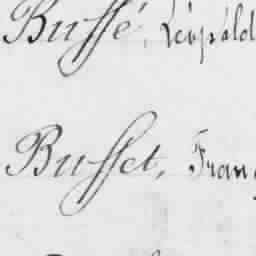 Buffé, Léopold
Buffet, Fran